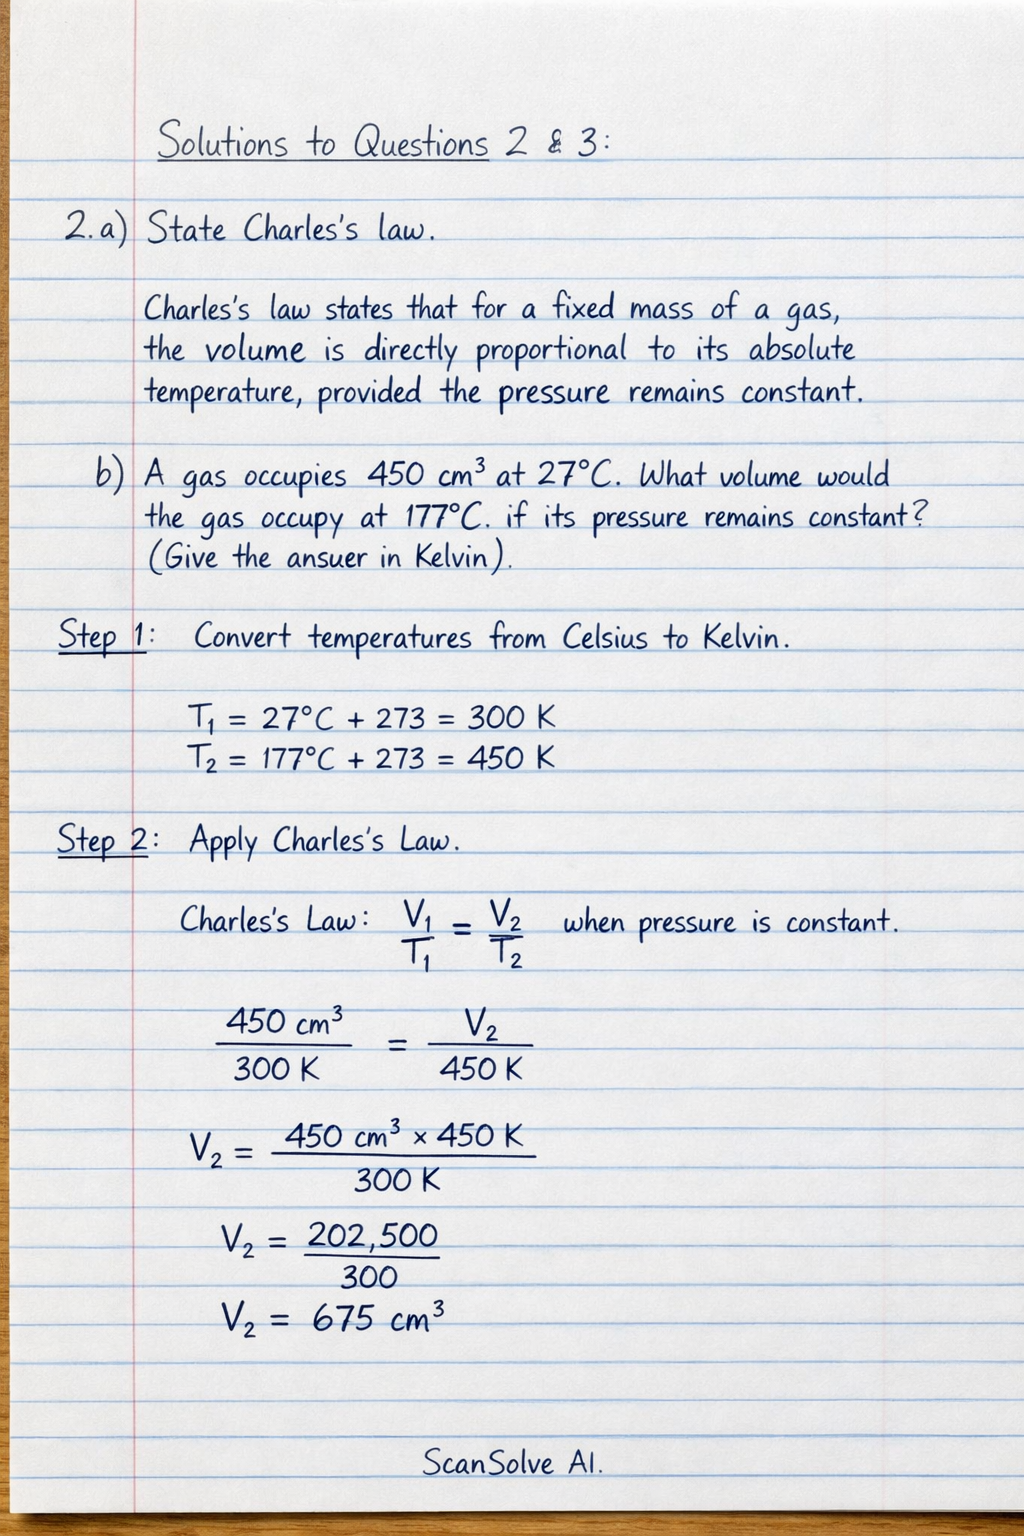 Solutions to Questions 2 & 3:
2. a) State Charles's law.
Charles's law states that for a fixed mass of a gas,
the volume is directly proportional to its absolute
temperature, provided the pressure remains constant.
b) A gas occupies 450 cm³ at 27°C. What volume would
the gas occupy at 177°C. if its pressure remains constant?
(Give the ansuer in Kelvin).
Step 1: Convert temperatures from Celsius to Kelvin.
T₁ = 27°C + 273 = 300 K
T₂ = 177°C + 273 = 450 K
Step 2: Apply Charles's Law.
Charles's Law: V₁/T₁ = V₂/T₂ when pressure is constant.
450 cm³/300 K = V₂/450 K
V₂ = 450 cm³ × 450 K/300 K
V₂ = 202,500/300
V₂ = 675 cm³
ScanSolve AI.